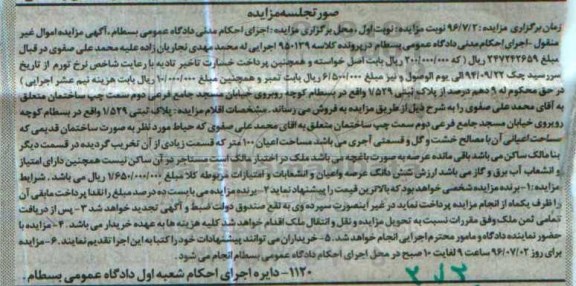 صورتجلسه مزایده
زمان برگزاری مزایده : ۹۶/۷/۳ نوبت مزایده: نوبت اول، محل برگزاری مزایده: اجرای احکام مدنی دادگاه عمومی بسطام، آگهی مزایده اموال غیر
منقول -اجرای احکام مدنی دادگاه عمومی بسطام در پرونده کلاسه ۹۵۰۱۳۹ اجرایی له محمد مهدی نجاریان زاده علیه محمد علی صفوی در قبال
مبلغ ۲۳۷۲۴۲۶۵۹ ریال بابت اصل خواسته و همچنین پرداخت خسارت تاخیر تادیه با رعایت شاخص نرخ تورم از تاریخ
سررسید چک ۹۴/۰۹/۲۲ الی یوم الوصول و نیز مبلغ ۶/۵۰۰/۰۰۰ ریال بابت تمبر و همچنین مبلغ ۱۰/۰۰۰/۰۰۰ ریال بابت هزینه نیم عشر اجرایی )
در حق محکوم له ۹ دهم درصد از پلاک ثبتی ۱/۵۲۹ واقع در بسطام کوچه روبروی خیابان مسجد جامع فرعی دوم سمت چپ ساختمان متعلق
به آقای محمد علی صفوی را به شرح ذیل از طریق مزایده به فروش می رساند. مشخصات اقلام مزایده: پلاک ثبتی ۱/۵۲۹ واقع در بسطام کوچه
روبروی خیابان مسجد جامع فرعی دوم سمت چپ ساختمان متعلق به آقای محمد علی صفوی که حیاط مورد نظر به صورت ساختمان قدیمی که
مساحت اعیانی آن با مصالح خشت و گل و قسمتی آجری می باشد مساحت اعیان ۱۰۰ متر که قسمت زیادی از آن تخریب گردیده در قسمت دیگر
بنا مالک ساکن می باشد باقی مانده عرصه به صورت باغچه می باشد ملک در اختیار مالک است مستاجر در آن ساکن نیست همچنین دارای امتیاز
و انشعاب آب برق و گاز می باشد ارزش شش دانگ عرصه واعیان و انشعابات و امتیازات مربوطه کلا مبلغ ۱/۶۵۰/۰۰۰/۰۰۰ ریال می باشد. شرایط
مزایده: ۱-برنده مزایده شخصی خواهد بود که بالاترین قیمت را پیشنهاد نماید ۲-برنده مزایده می بایست ده درصد مبلغ را نقدا پرداخت مابقی آن
را ظرف یکماه از انجام مزایده پرداخت نماید در غیر اینصورت سپرده وی به نفع صندوق دولت ضبط و آگهی تجدید خواهد شد ۳-پس از دریافت
تمامی ثمن ملک وفق مقررات نسبت به تحویل مزایده و نقل و انتقال ملک اقدام خواهد شد کلیه هزینه ها به عهده خریدار می باشد. ۴-مزایده با
حضور نماینده دادگاه و مامور محترم اجرایی انجام خواهد شد. ۵-خریداران می توانند پیشنهادات خود را کتبا به این اجرا تقدیم نمایند. ۶-مزایده
برای روز ۹۶/۰۷/۰۳ ساعت ۹ لغایت ۱۰ صبح در محل اجرای احکام دادگاه عمومی بسطام انجام می شود.
۱۱۲۰- دایره اجرای احکام شعبه اول دادگاه عمومی بسطام.